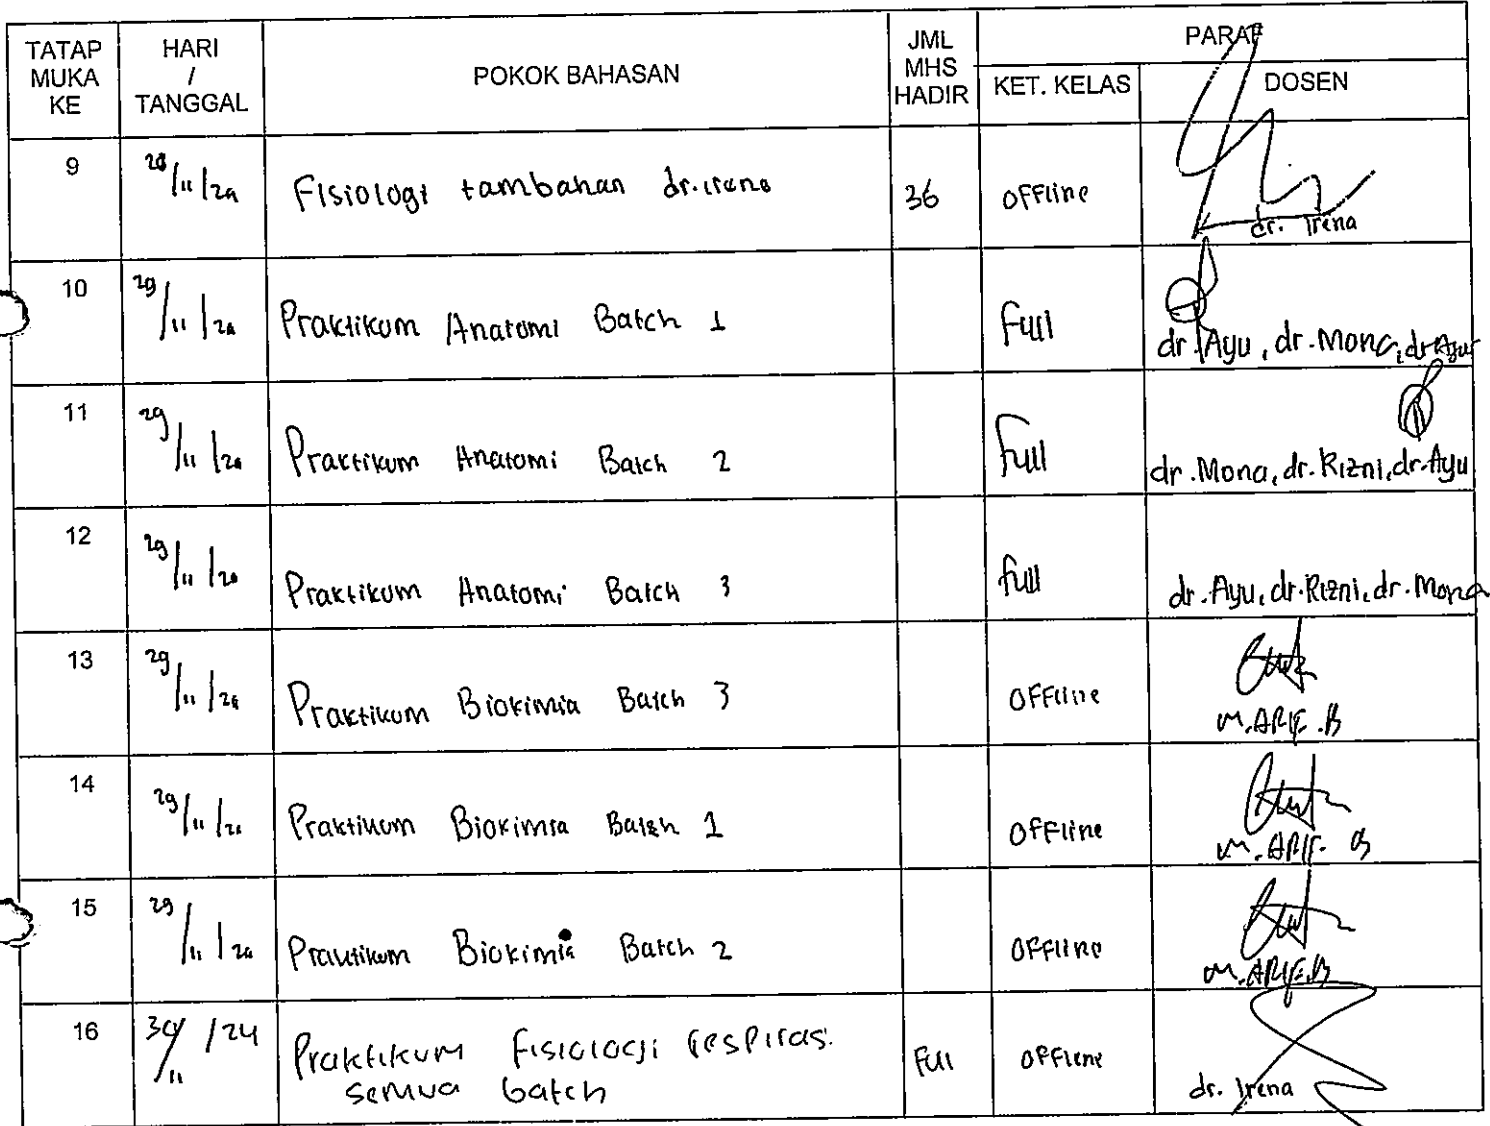 TATAP MUKA KE HARI / TANGGAL POKOK BAHASAN JML MHS HADIR PARAF
KET. KELAS DOSEN
9 28/11/24 Fisiologi tambahan dr.irena 36 offline dr. Irena
10 29/11/24 Praktikum Anatomi Batch 1 Full dr. Ayu, dr. Mona, dr Ayu
11 29/11/24 Praktikum Anatomi Batch 2 Full dr. Mona, dr. Rizni, dr. Ayu
12 29/11/24 Praktikum Anatomi Batch 3 full dr. Ayu, dr. Rizni, dr. Mona
13 29/11/24 Praktikum Biokimia Batch 3 OFFline M. ARIF. B
14 29/11/24 Praktikum Biokimia Batch 1 OFFline M. ARIF. B
15 29/11/24 Praktikum Biokimia Batch 2 OFFline M. ARIF. B
16 30/11/24 Praktikum Fisiologi respirasi Full OFFline dr. Irena
semua batch